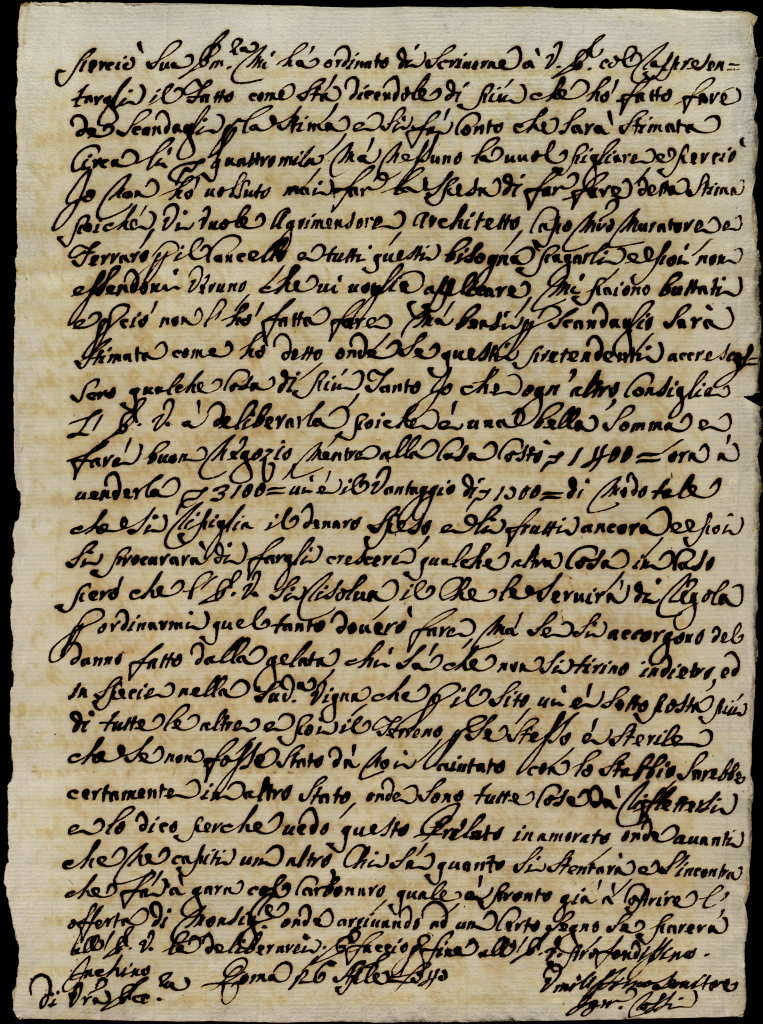 perciò Sua Em.za Mi hà ordinato di Scriverne à V. E. col Rappresen=
targli il Fatto come Stà, dicendole di più che hò fatto fare
da Scandaglio p la Stima, e Si fà Conto che Sarà Stimata
Circa li quattromila, Mà Nessuno la vuol pigliare, e perciò
Io Non hò voluto mai far la Spesa di far fare detta Stima
poiche, Vi vuole Agrimensore, Architetto, Capo Mro Muratore, e
Ferraro p il Cancello, e tutti questi bisogna pagarli, e poi non
essendovi Veruno, che vi voglia applicare, Mi paiono buttati
e p ciò non l'hò fatta fare, Mà bensi p Scandaglio Sarà
Stimata come hò detto onde Se questi pretendenti accresces=
Sero qualche Cosa di più, Tanto Io che ogn'altro Consiglia
V. E. à deliberarla, poiche è una bella Somma, e
farà buon Negozio Mentre alla Casa Costò 1400 = ora à
venderla 3100 = vi è il Vantaggio di = di Modo tale
che Si Ripiglia il denaro Speso, e li frutti ancora, e poi
Si procurarà di fargli crescere qualche altra Cosa, in Caso
però che l'E. V. Si Risolva il Che le Servirà di Regola
p ordinarmi quel tanto doverò fare, Mà Se Si accorgono del
danno fatto dalla gelata chi Sà che non Si tirino indietro, ed
in Specie nella Sud.a Vigna, che p il Sito, vi è Sotto posta più
di tutte le altre, e poi il Terreno p Se Stesso, è Sterile
che Se non fosse Stato dà Noi aiutato con lo Stabbio Sarebbe
certamente in altro Stato, onde Sono tutte Cose dà Riflettersi
e lo dico perche vedo questo Prelato inamorato onde avanti
che Ne capiti un altro Chi Sà quanto Si Stentarà e l'incontra
che fà à gara col Carbonaro, quale è pronto già à Coprire l'
offerta di Monsig.re onde arrivando ad un Certo Segno Se piacerà
all'E. V. la delibererei. E faccio fine all'E. V. profondissimo.
Inchino
Di Vra Ecc.za Roma 16 Aple
Umilissimo Servitore